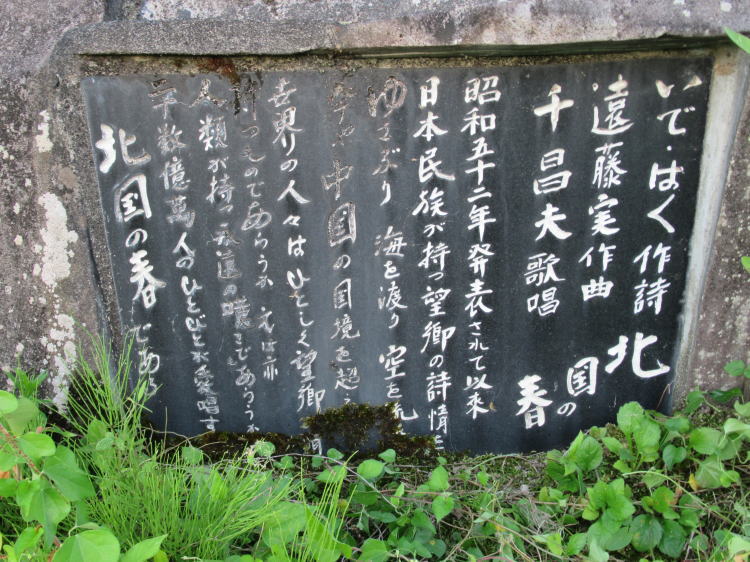 いで・はく作詩
遠藤実作曲
千昌夫歌唱
北国の春
昭和五十二年発表されて以来
日本民族が持つ望郷の詩情を
ゆさぶり 海を渡り 空を
中国の国境を超え
世界の人々はひとしく望郷
つものであらうか 又は亦
人類が持つ の嘆きであらうか
十数億萬人のひとびとが愛唱す
北国の春である